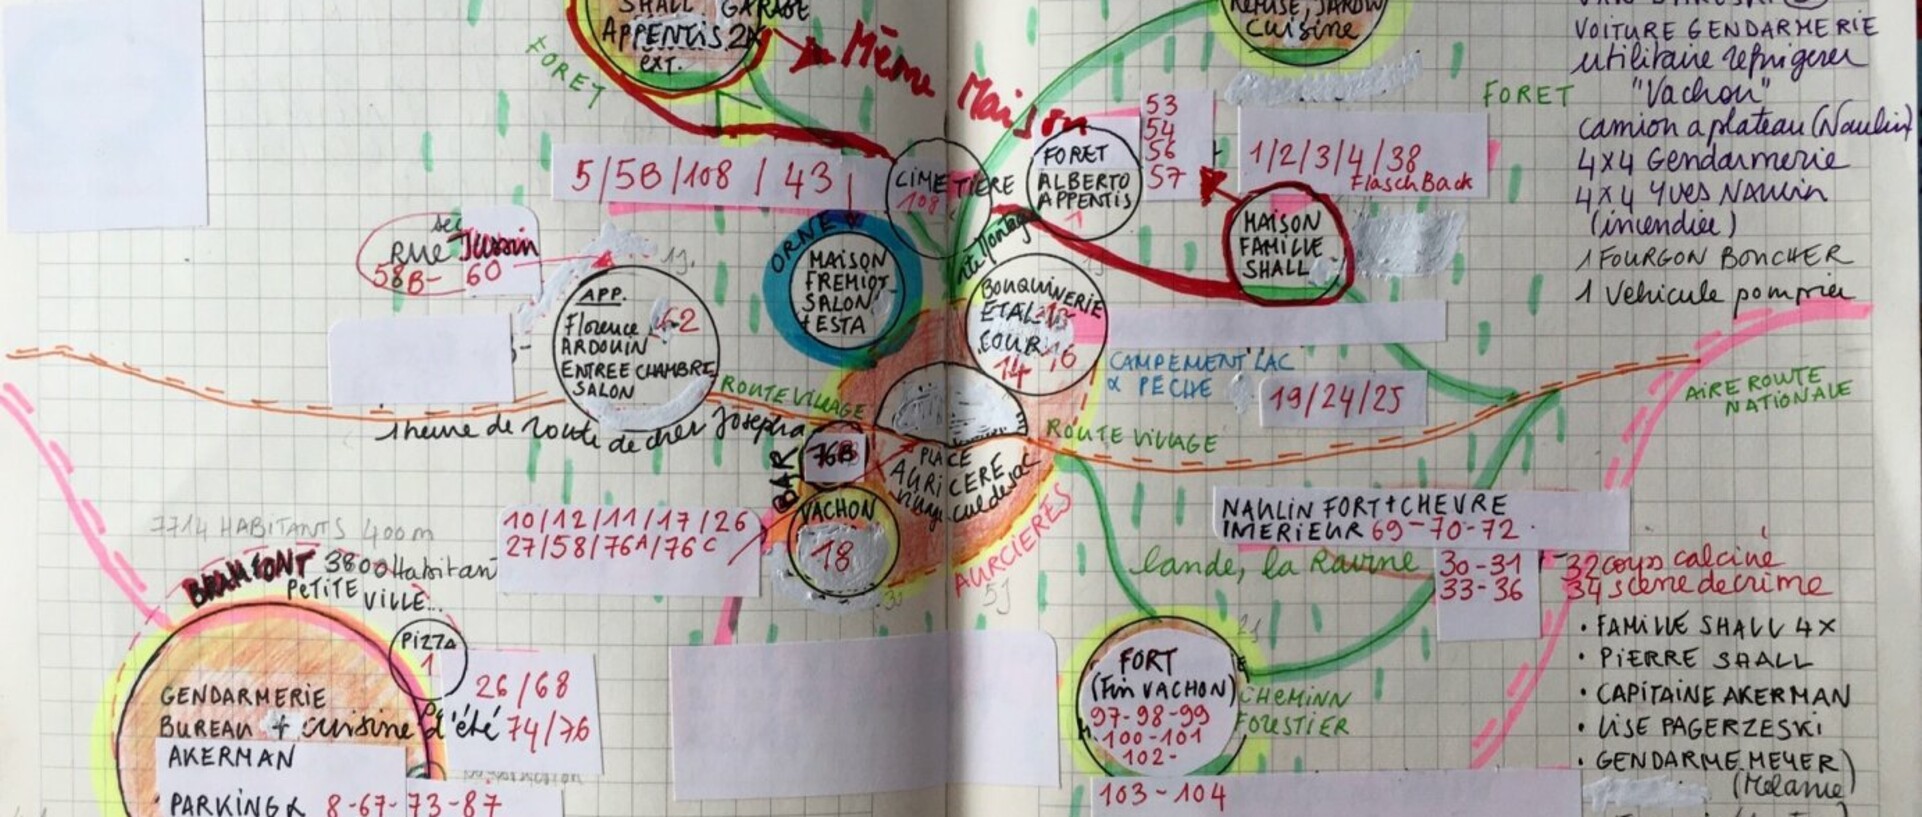 SHALL GARAGE
APPENTIS 2X
EXT.
FORET
Même Maison
REMISE, JARDIN
Cuisine
FORET
VOITURE GENDARMERIE
utilitaire refrigerer
"Vachon"
camion a plateau (Naulin)
4x4 Gendarmerie
4x4 Yves Naulin
(incendiée)
1 FOURGON BONCHER
1 Vehicule pompier
5/5B/108 / 43
CIMETIERE
108
FORET
ALBERTO
APPENTIS
1
53
54
56
57
1/2/3/4/38
FlaschBack
MAISON
FAMILLE
SHALL
Rue Jussin
58B- 60
ORNE
MAISON
FREMIOT
SALON
+ ESTA
APP.
Florence 62
ARDOUIN
ENTREE CHAMBRE
SALON
BOUQUINERIE
ETAL
COUR 16
14
CAMPEMENT LAC
& PÊCHE
19/24/25
AIRE ROUTE
NATIONALE
ROUTE VILLAGE
1 heure de route de chez Josepha
ROUTE VILLAGE
BAR
76B
PLACE
AURICERE
village culdesac
VACHON
18
AURCIERES
10/12/11/17/26
27/58/76A/76C
NAULIN FORT+CHEVRE
INTERIEUR 69-70-72
lande, la Ravine
30-31
33-36
32 corps calciné
34 scene de crime
7714 HABITANTS 400m
BRAMFONT 3800 Habitant
PETITE VILLE...
PIZZA
1
26/68
74/76
GENDARMERIE
BUREAU + cuisine d'été
AKERMAN
PARKING & 8-67-73-87
FORT
(Fin VACHON)
97-98-99
100-101
102-
103-104
CHEMINN
FOUESTIER
• FAMILLE SHALL 4X
• PIERRE SHALL
• CAPITAINE AKERMAN
• LISE PAGERZESKI
• GENDARME MEYER
(Mélanie)